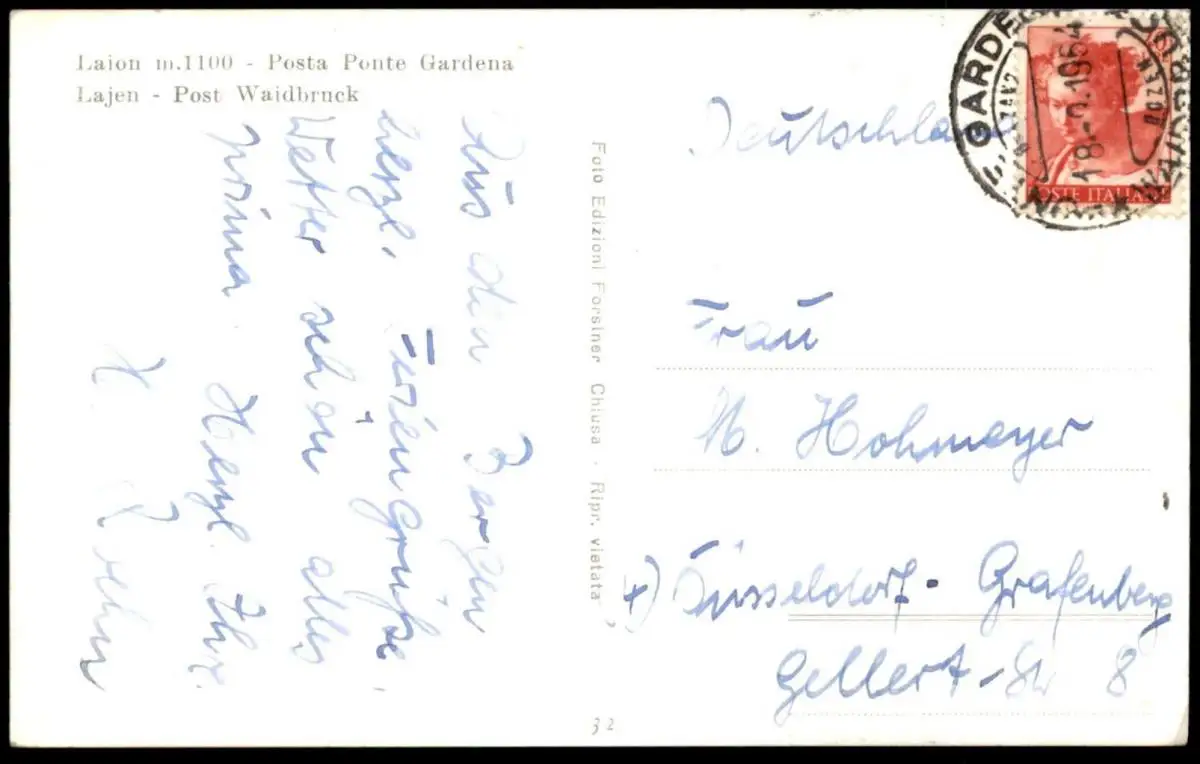 Laion m.1100 - Posta Ponte Gardena
Lajen - Post Waidbruck
Aus den Bergen
herzl. Feriengrüße.
Wetter schön alles
prima Herzl. Ihre
Foto Edizioni Forsiner Chiusa - Ripr. vietata
32
Deutschland
Frau
M. Hohmeyer
4) Düsseldorf - Grafenberg
Gellert-Str 8
GARDENA
18.-9.1964
POSTE ITALIANE